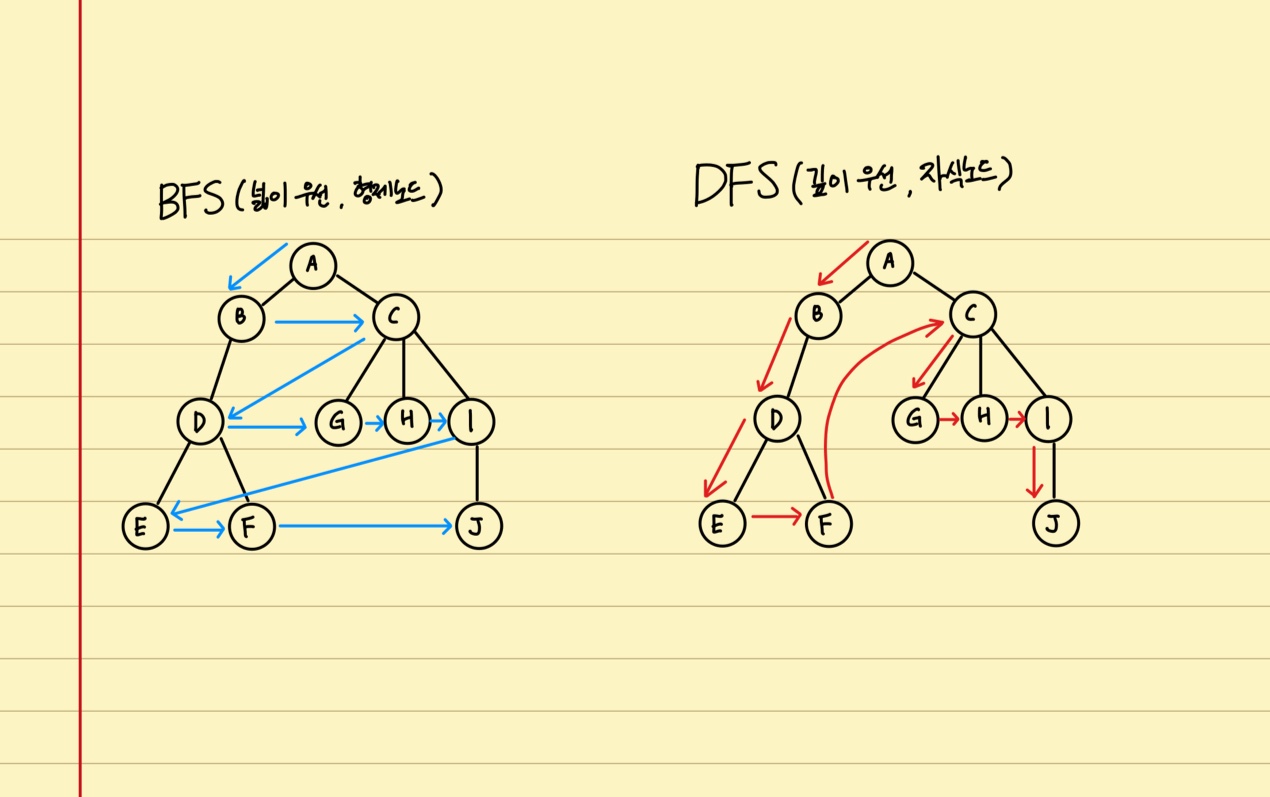 BFS (넓이 우선, 형제노드)
A
B C
D G H I
E F J
DFS (깊이 우선, 자식노드)
A
B C
D G H I
E F J